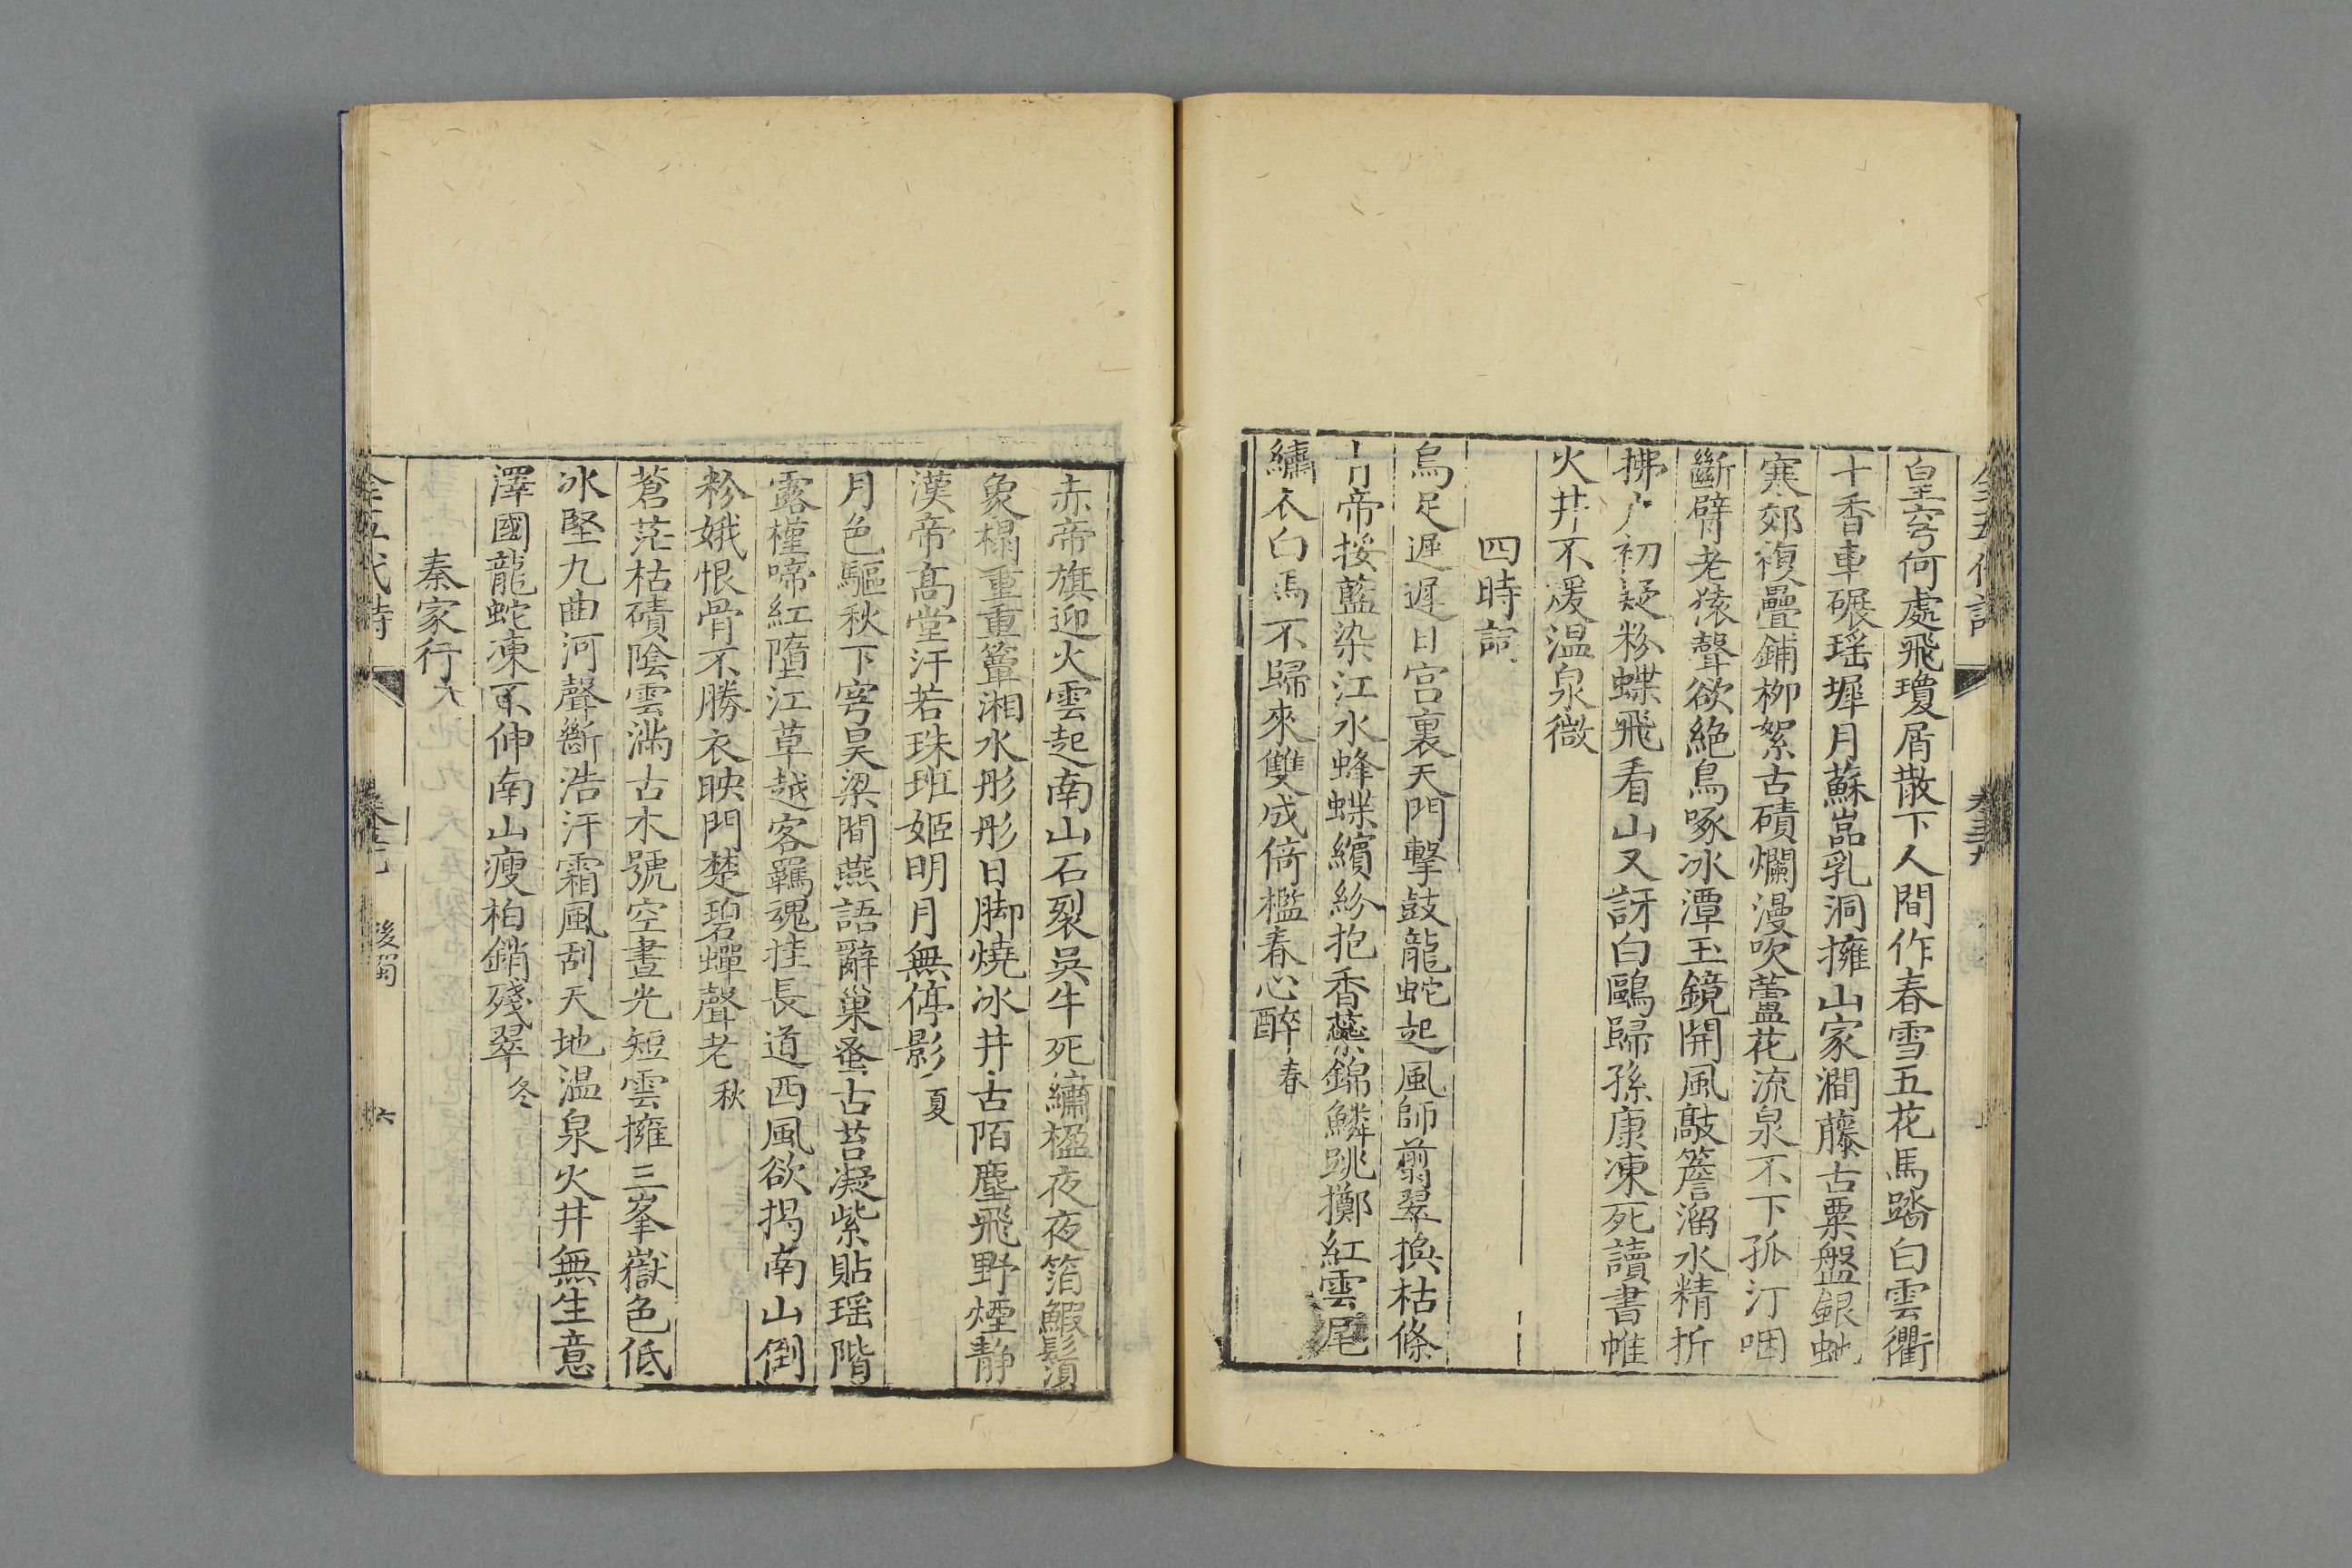 皇穹何處飛瓊屑散下人間作春雪五花馬踏白雲衢
十香車碾瑶墀月蘇嵓乳洞擁山家澗藤古栗盤銀虵
寒郊複疊鋪柳絮古磧爛漫吹蘆花流泉不下孤汀咽
斷臂老猿聲欲絶鳥啄冰潭玉鏡開風敲簷溜水精折
拂户初疑粉蝶飛看山又訝白鷗歸孫康凍死讀書帷
火井不煖温泉微
四時詞
烏足遲遲日宫裏天門擊鼓龍蛇起風師翦翠換枯條
青帝挼藍染江水蜂蝶繽紛抱香蘂錦鱗跳擲紅雲尾
繡衣白馬不歸來雙成倚檻春心醉春
赤帝旗迎火雲起南山石裂吳牛死繡楹夜夜箔鰕鬚
象榻重重簟湘水彤彤日脚燒冰井古陌塵飛野煙靜
漢帝髙堂汗若珠班姬明月無停影夏
月色驅秋下穹昊梁間燕語辭巢蚤古苔凝紫貼瑶階
露槿啼紅墮江草越客羈魂挂長道西風欲揭南山倒
粉娥恨骨不勝衣映門楚碧蟬聲老秋
蒼茫枯磧陰雲滿古木號空晝光短雲擁三峯嶽色低
冰堅九曲河聲斷浩汗霜風刮天地温泉火井無生意
澤國龍蛇凍不伸南山瘦柏銷殘翠冬
秦家行
全五代詩
後蜀